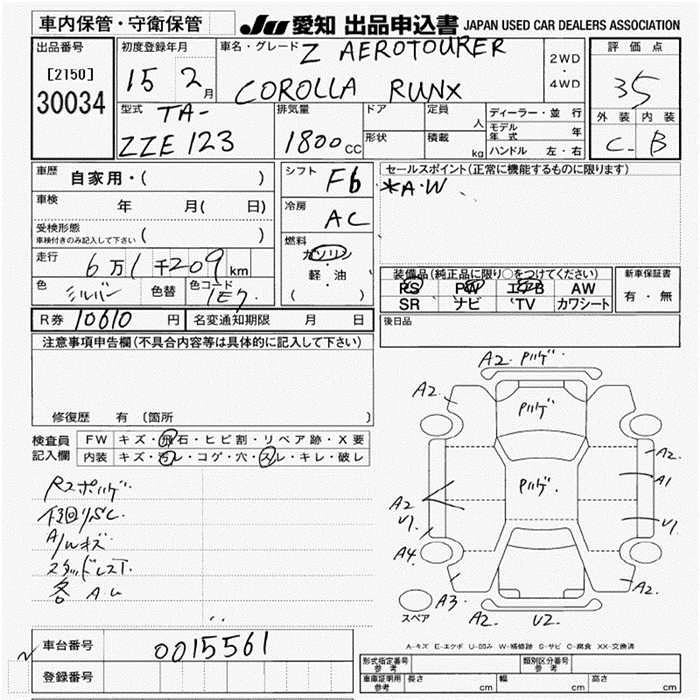 車内保管・守衛保管 JU 愛知 出品申込書 JAPAN USED CAR DEALERS ASSOCIATION
出品番号 初度登録年月 車名・グレード Z AEROTOURER 2WD・4WD 評価点
[2150] 30034 15 2月 COROLLA RUNX 35
型式 TA- 排気量 ドア 定員 人 ディーラー・並行 外装 内装
ZZE123 1800cc 形状 積載 kg モデル年式 年 C B
ハンドル 左・右
車歴 自家用・( ) シフト F6 セールスポイント(正常に機能するものに限ります)
*A・W
車検 年 月( 日) 冷房 AC
受検形態 ( )
車検付きのみ記入して下さい
走行 6万1千209km 燃料 ガソリン・軽・油 ( )
色 シルバー 色替 色コード 1E7
装備品(純正品に限り○をつけてください) 新車保証書
PS PW エアB AW 有・無
SR ナビ TV カワシート
R券 10610円 名変通知期限 月 日 後日品
注意事項申告欄(不具合内容等は具体的に記入して下さい)
修復歴 有 〔箇所
検査員記入欄 FW キズ・飛石・ヒビ割・リペア跡・X要
内装 キズ・汚レ・コゲ・穴・スレ・キレ・破レ
Rスポハゲ
下回リSC.
A/Wキズ
スタッドレスT.
各 AU
A2. Pハゲ
A2 Pハゲ A2
A2.
A1
A2 Pハゲ
U1 U1
A4
A3 A2.
A2 U2.
スペア
A-キズ E-エクボ U-凹み W-補修跡 S-サビ C-腐食 XX-交換済
車台番号 0015561
登録番号
形式指定番号 参考 類別区分番号 参考
車庫証明用 参考 長さ cm 幅 cm 高さ cm